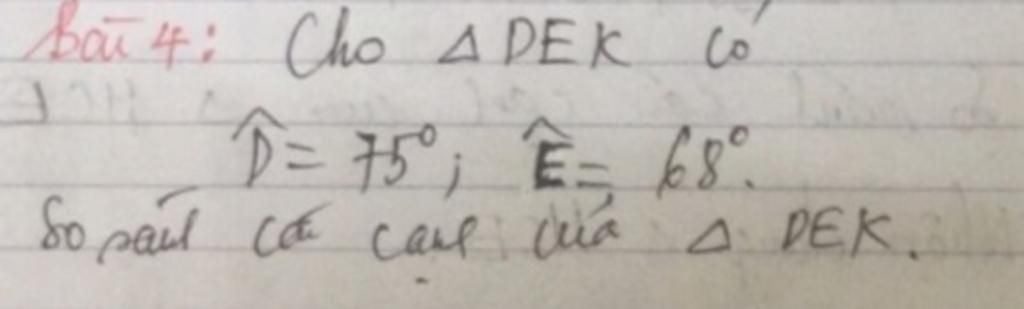 Bài 4: Cho △ DEK có
D̂ = 75°; Ê = 68°.
So sánh các cạnh của △ DEK.